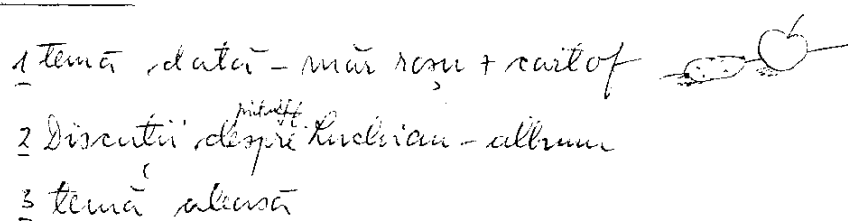 1 temă dată - măr roșu + cartof
2 Discuții despre Luchian - album
3 temă aleasă